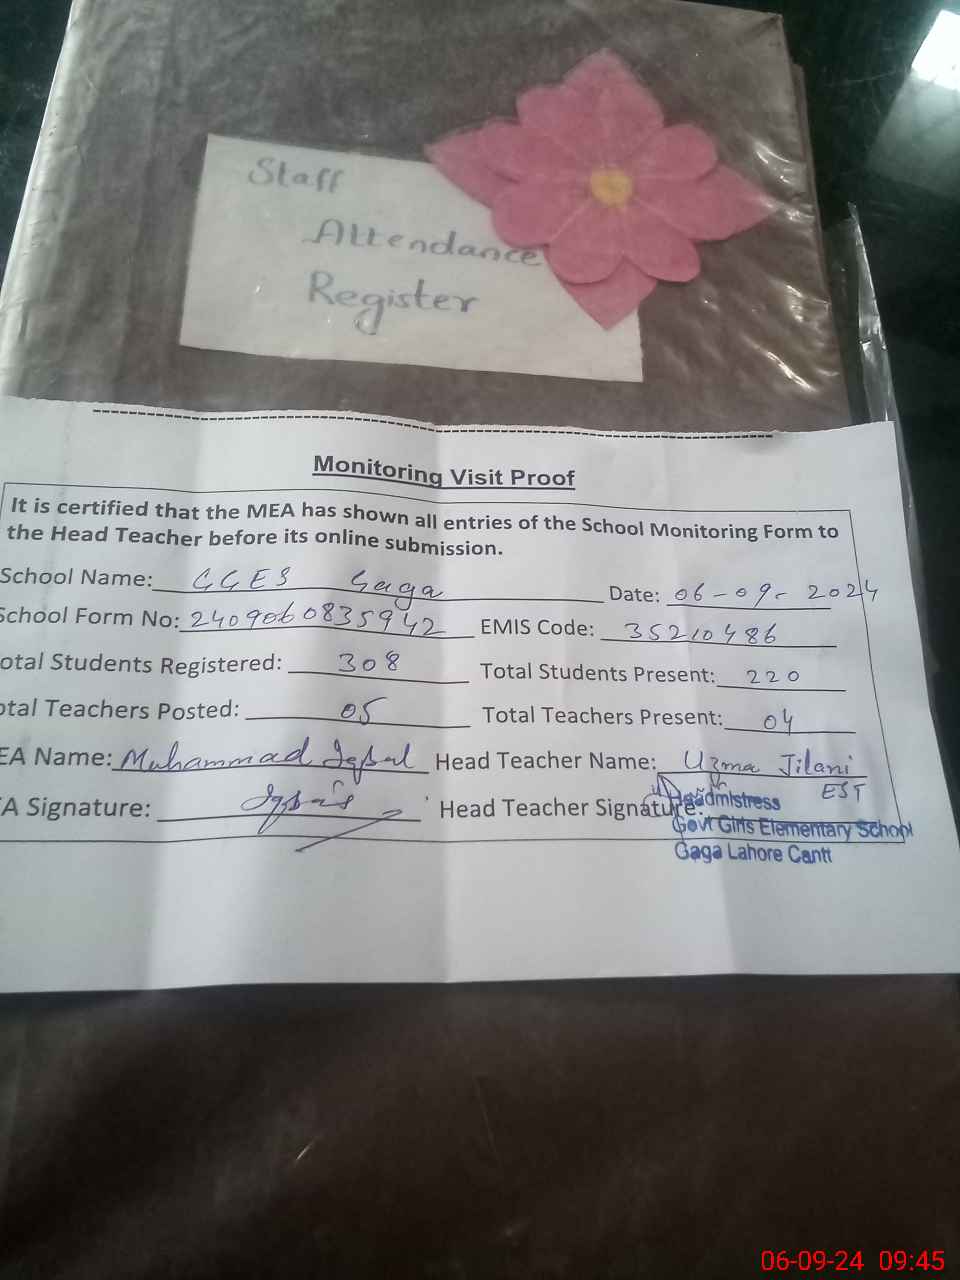 Staff
Attendance
Register
Monitoring Visit Proof
It is certified that the MEA has shown all entries of the School Monitoring Form to
the Head Teacher before its online submission.
School Name: GGES Gaga Date: 06-09-2024
School Form No: 2409060835942 EMIS Code: 35210486
otal Students Registered: 308 Total Students Present: 220
otal Teachers Posted: 05 Total Teachers Present: 04
EA Name: Muhammad Iqbal Head Teacher Name: Uzma Jilani
EST
EA Signature: Iqbal Head Teacher Signature:
Headmistress
Govt Girls Elementary School
Gaga Lahore Cantt
06-09-24 09:45